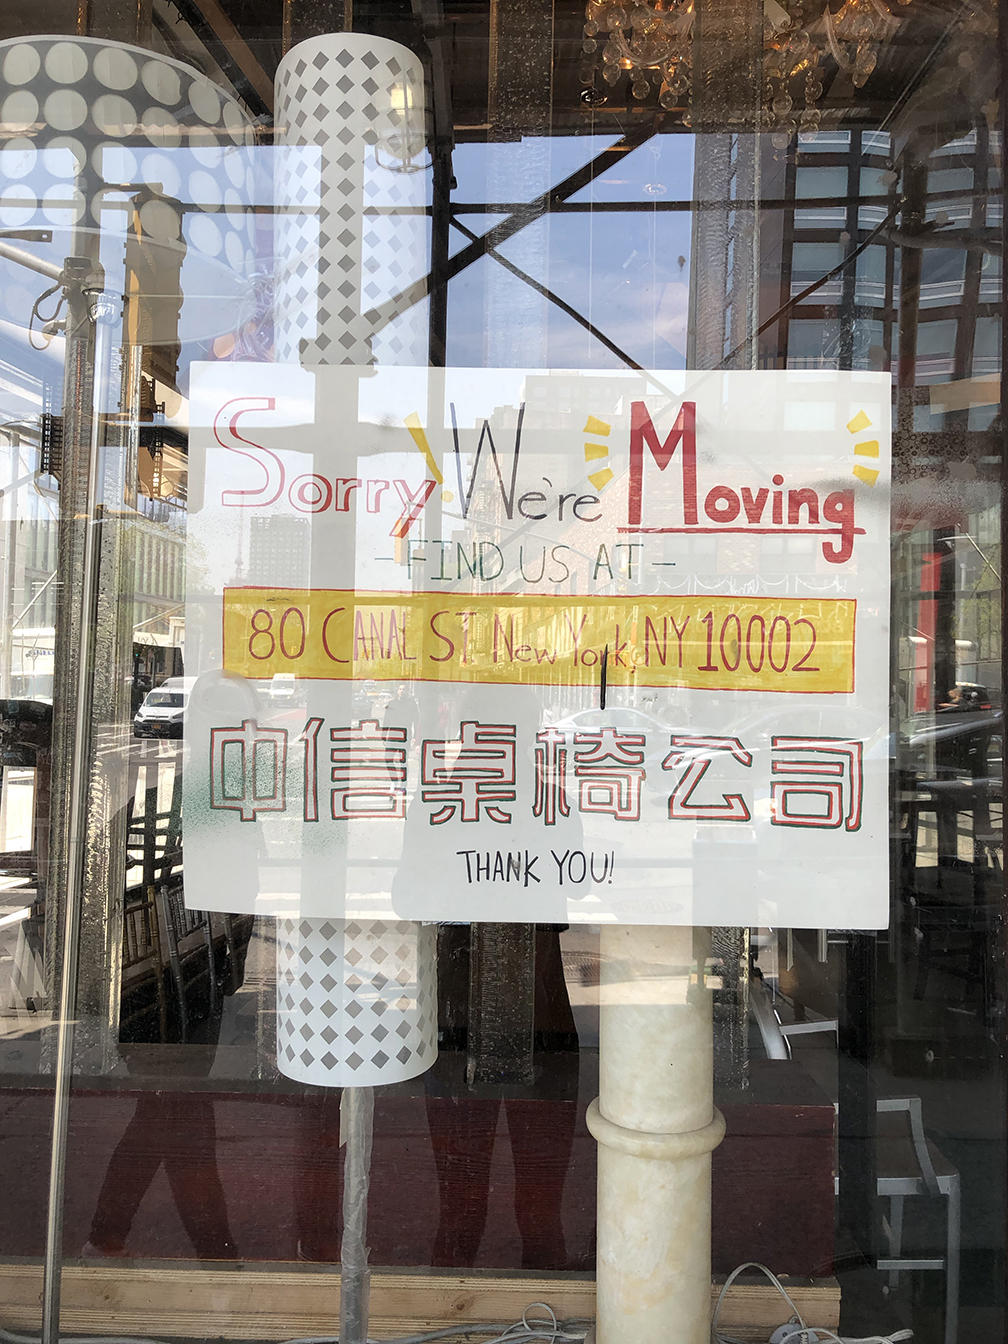 Sorry We're Moving
-FIND US AT-
80 CANAL ST New York, NY 10002
中信桌椅公司
THANK YOU!